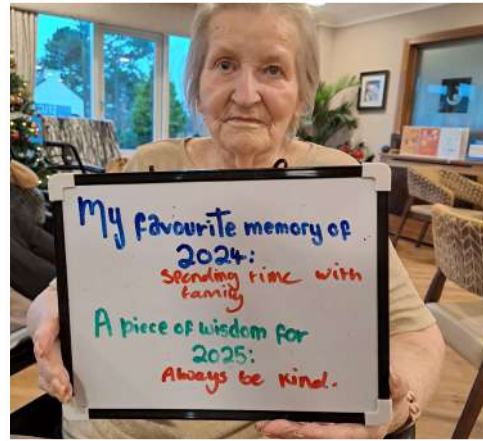 My favourite memory of
2024:
Spending time with
family
A piece of wisdom for
2025:
Always be kind.